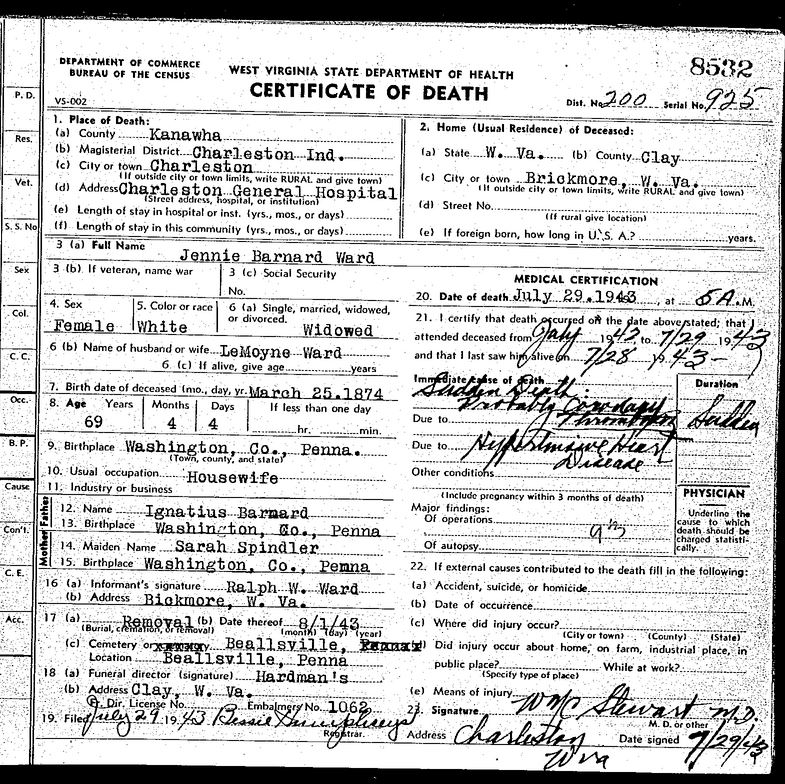 8532
DEPARTMENT OF COMMERCE
BUREAU OF THE CENSUS
WEST VIRGINIA STATE DEPARTMENT OF HEALTH
CERTIFICATE OF DEATH
VS-002
Dist. No. 200 Serial No. 925
P. D.
Res.
Vet.
S. S. No
Sex
Col.
C. C.
Occ.
B. P.
Cause
Con't.
C. E.
Acc.
1. Place of Death:
(a) County Kanawha
(b) Magisterial District Charleston Ind.
(c) City or town Charleston
(If outside city or town limits, write RURAL and give town)
(d) Address Charleston General Hospital
(Street address, hospital, or institution)
(e) Length of stay in hospital or inst. (yrs., mos., or days)
(f) Length of stay in this community (yrs., mos., or days)
2. Home (Usual Residence) of Deceased:
(a) State W. Va. (b) County Clay
(c) City or town Brickmore, W. Va.
(If outside city or town limits, write RURAL and give town)
(d) Street No.
(If rural give location)
(e) If foreign born, how long in U.S. A.? years.
3 (a) Full Name
Jennie Barnard Ward
3 (b). If veteran, name war
3 (c) Social Security
No.
4. Sex
Female
5. Color or race
White
6 (a) Single, married, widowed,
or divorced.
Widowed
6 (b) Name of husband or wife LeMoyne Ward
6 (c) If alive, give age years
7. Birth date of deceased (mo., day, yr. March 25.1874
8. Age Years Months Days If less than one day
69 4 4 hr. min.
9. Birthplace Washington, Co., Penna.
(Town, county, and state)
10. Usual occupation Housewife
11. Industry or business
Father
12. Name Ignatius Barnard
13. Birthplace Washington, Co., Penna
Mother
14. Maiden Name Sarah Spindler
15. Birthplace Washington, Co., Penna
16 (a) Informant's signature Ralph W. Ward
(b) Address Bickmore, W. Va.
17 (a) Removal (b) Date thereof 8/1/43
(Burial, cremation, or removal) (month) (day) (year)
(c) Cemetery or Beallsville,
Location Beallsville, Penna
18 (a) Funeral director (signature) Hardman's
(b) Address Clay, W. Va.
Dir. License No. Embalmers No. 1062
19. Filed July 29 1943 Bessie Humphreys
Registrar.
MEDICAL CERTIFICATION
20. Date of death July 29.1943, at 5 A. M.
21. I certify that death occurred on the date above stated; that I
attended deceased from July 1942 to 7/29 1943
and that I last saw him alive on 7/28 1943
Immediate cause of death
Sudden Death
Probably Coronary
Due to Thrombosis
Due to Hypertensive Heart
Disease
Other conditions
(Include pregnancy within 3 months of death)
Major findings:
Of operations
Of autopsy
Duration
Sudden
PHYSICIAN
Underline the
cause to which
death should be
charged statisti-
cally.
22. If external causes contributed to the death fill in the following:
(a) Accident, suicide, or homicide
(b) Date of occurrence
(c) Where did injury occur?
(City or town) (County) (State)
(d) Did injury occur about home, on farm, industrial place, in
public place? While at work?
(Specify type of place)
(e) Means of injury
23. Signature Wm C Stewart M.D.
M. D. or other
Address Charleston Date signed 7/29/43
W va